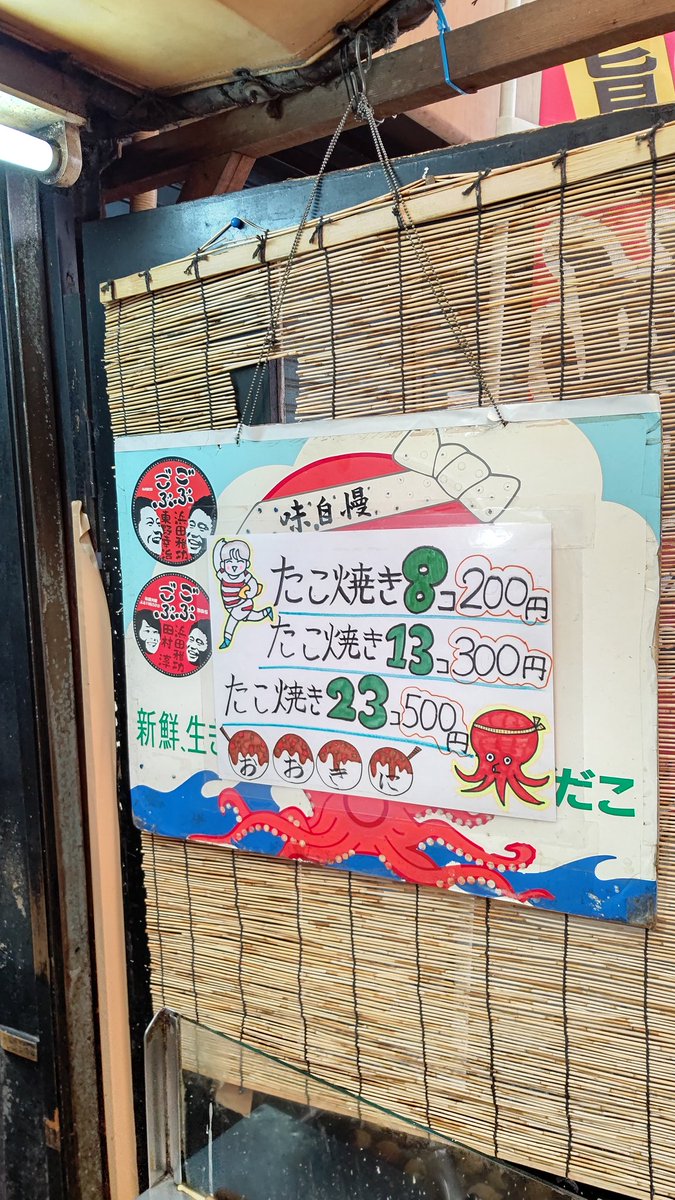 旨
味自慢
ごぶごぶ
浜田雅功
東野幸治
ごぶごぶ
浜田雅功
田村 淳
たこ焼き8コ200円
たこ焼き13コ300円
たこ焼き23コ500円
おおきに
新鮮、生き
だこ